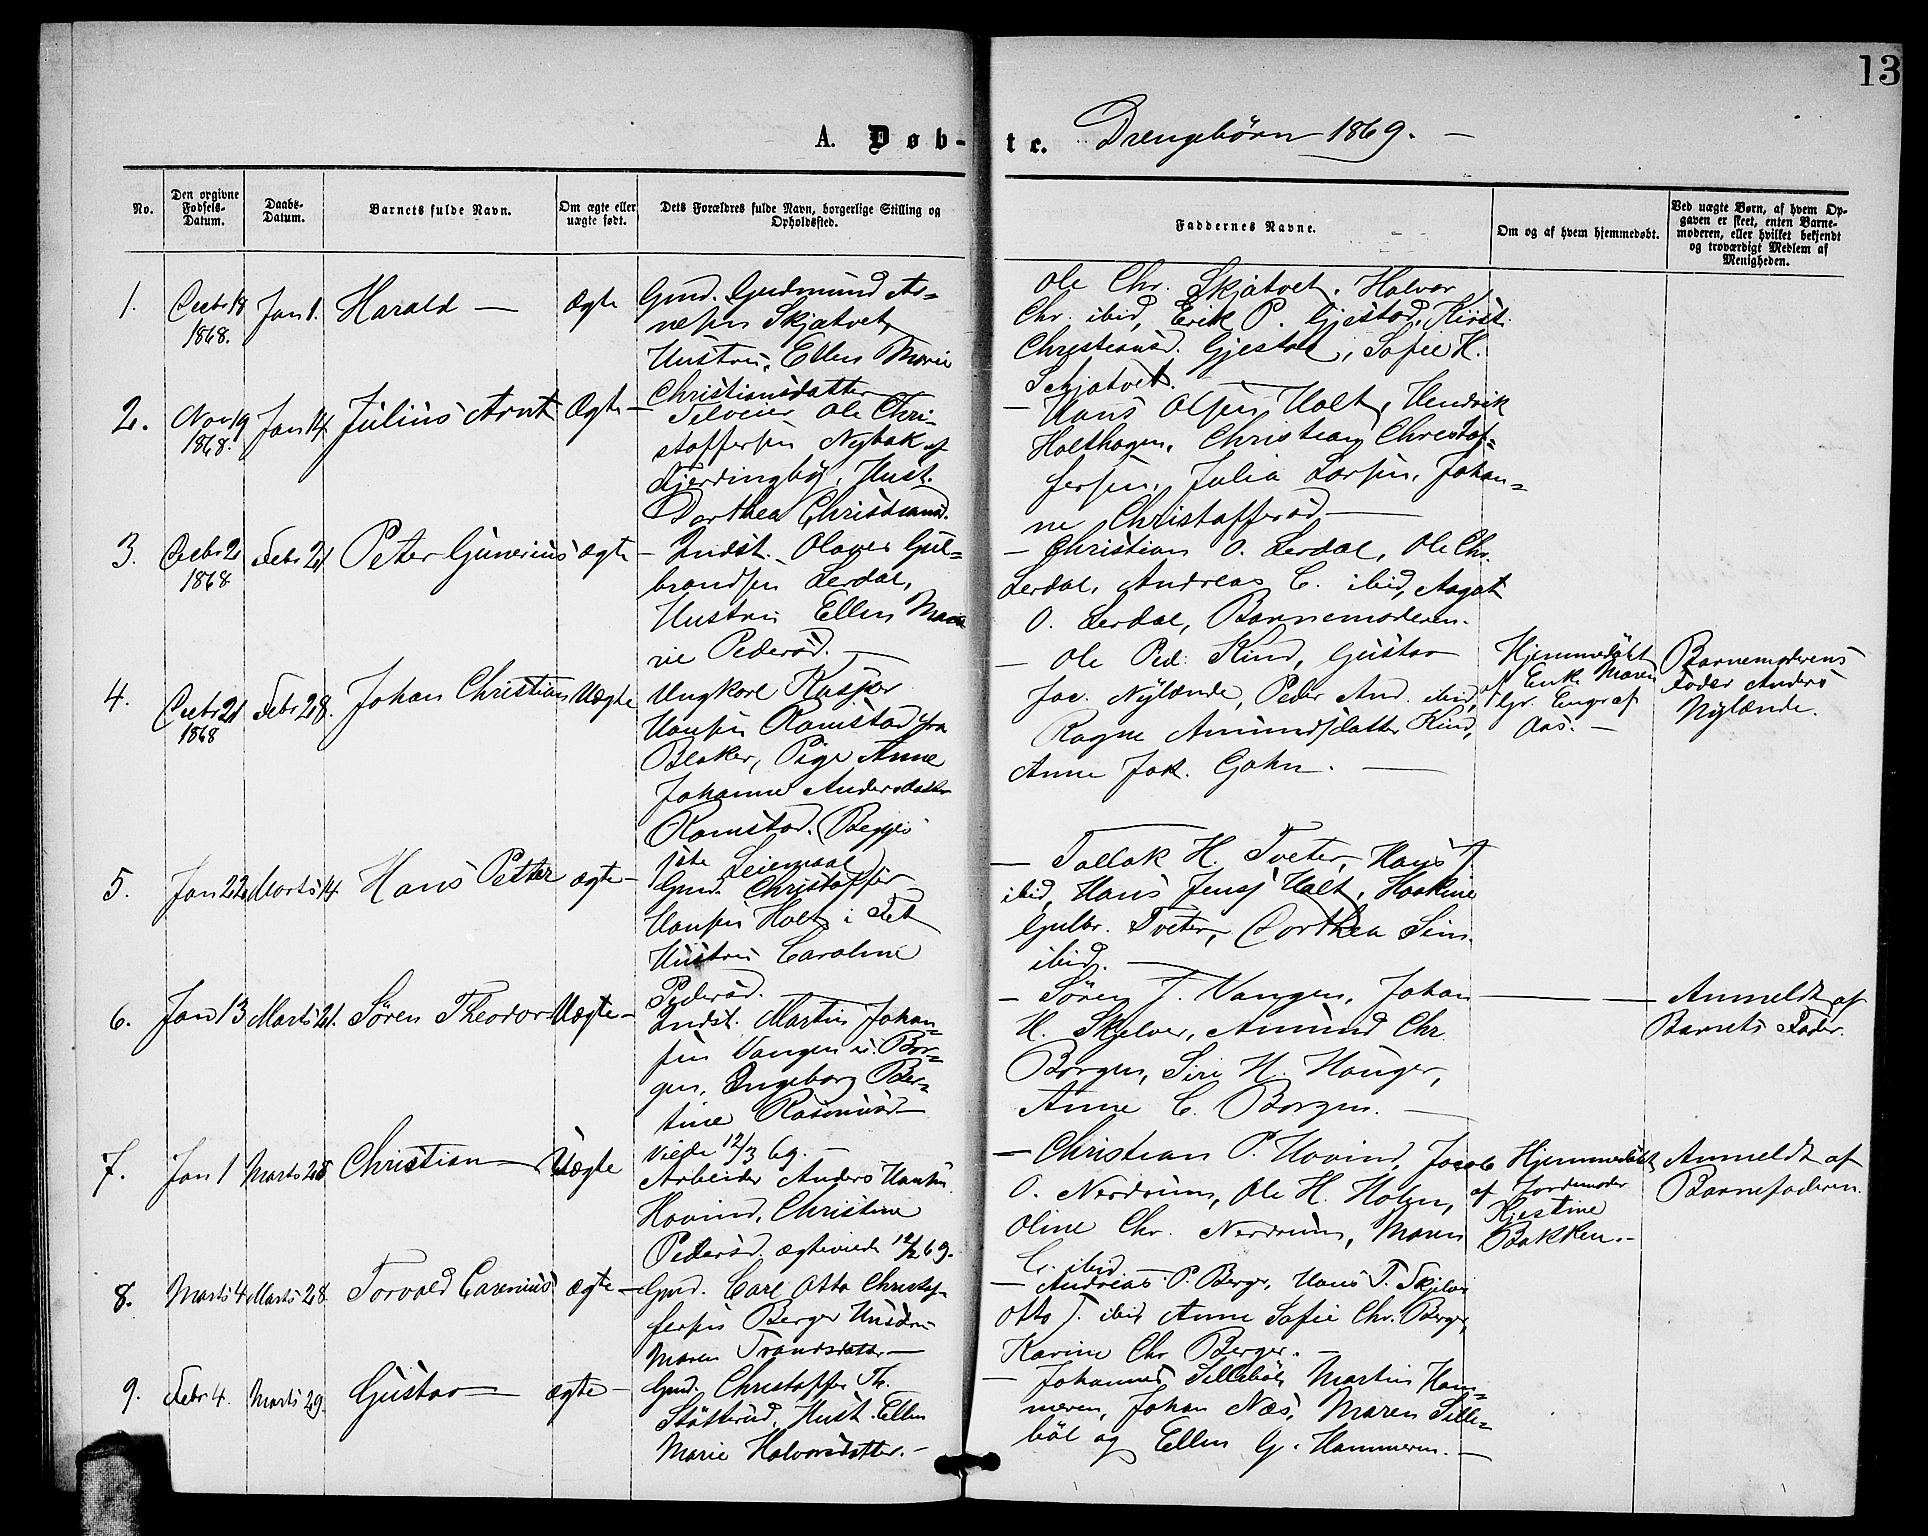 13
A. Døb-te. Drengebørn 1869. —
No.
Den opgivne Fødsels-Datum.
Daabs-Datum.
Barnets fulde Navn.
Om ægte eller uægte født.
Dets Forældres fulde Navn, borgerlige Stilling og Opholdssted.
Faddernes Navne.
Om og af hvem hjemmedøbt.
Ved uægte Børn, af hvem Opgaven er skeet, enten Barnemoderen, eller hvilket bekjendt og troværdigt Medlem af Menigheden.
1. Decbr 18 1868. Jan 1. Harald — Ægte
Gmd. Gudmund Ar=
nesen Skjatvet,
Hustru, Ellen Marie
Christiansdatter
Ole Chr. Skjatvet, Halvor
Chr. ibid, Erik P. Gjestad, Kirst.
Christiansd. Gjestad, Sofie H.
Schjatvet.
2. Nov 19 1868. Jan 14. Julius Arnt Ægte —
Ole Chri-
stoffersen Nybak af
Fjerdingby, Hust.
Dorthea Christiansd.
— Hans Olsen Holt, Hendrik
Holthagen, Christian Christof=
fersen, Julia Larsen, Johan=
ne Christoffersd —
3. Decbr 21 1868 Febr 21 Peter Gunerius ægte
— Indst. Olaves Gul=
brandsen Lerdal,
Hustru Ellen Ma
rie Pedersd. —
— Christian O. Lerdal, Ole Chr.
Lerdal, Andreas C. ibid, Aagot
O. Lerdal, Barnemoderen.
4. Decbr 21 1868 Febr 28. Johan Christian Uægte
Ungkarl Kasper
Hansen Ramstad fra
Blaker, Pige Anne
Johanne Andersdatter
Ramstad. (Begges
1ste Leiemaal)
— Ole Ped. Kind, Gustav
Jac. Nylænde, Peder And. ibid,
Ragne Amundsdatter Kind,
Anne Jak. Gahn. —
Hjemmedøbt
af Enke Maren
Gr. Enger af
Aas. —
Barnemoderens
Fader Anders
Nylænde.
5. Jan 22. Marts 14. Hans Petter ægte —
Gmd. Christoffer
Hansen Holt i Fet
Hustru Caroline
Pedersd. —
— Tollak H. Tveter, Hans T.
ibid, Hans Jensj Holt, Hoakine
Gulbr. Tveter, Dorthea Sim.
ibid. —
6. Jan 13 Marts 21. Søren Theodor Uægte —
Indst. Martin Johan=
sen Vangen u. Bor=
gen, Ingeborg Ber=
tine Rasmusd —
viede 12/3 69. —
— Søren J. Vangen, Johan
H. Skjelver, Amund Chr.
Borgen, Siri H. Hauger,
Anne C. Borgen. —
— Anmeldt af
Barnets Fader.
7. Jan 1 Marts 28 Christian — Uægte
Arbeider Anders Hansen
Hovind, Christine
Pedersd. ægteviede 12/2 69.
— Christian P. Hovind, Jacob
O. Nerdrum, Ole H. Holen,
Oline Chr. Nerdrum, Maren
C. ibid.
Hjemmedøbt
af Jordemoder
Kjestine
Bakken. —
Anmeldt af
Barnefaderen.
8. Marts 4. Marts 28. Torvald Carenius. ægte —
Gmd. Carl Otto Christof-
fersen Berger Hustru
Maren Trondsdatter —
— Andreas P. Berger, Hans T. Skjelver
Otto J. ibid Anne Sofie Chr. Berger,
Karine Chr Berger. —
9. Febr 4. Marts 29. Gustav — ægte —
Gmd. Christoffer Th.
Støtterud, Hust. Ellen
Marie Halvorsdatter. —
— Johannes Sillebøl, Martin Ham=
meren, Johan Næs, Maren Sille=
bøl og Ellen G. Hammeren. —